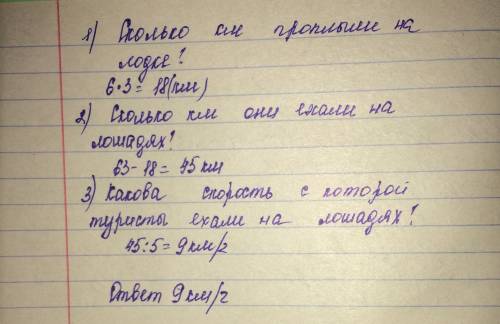 1) Сколько км проплыли на
лодке?
6·3 = 18 (км)
2) Сколько км они ехали на
лошадях?
63 - 18 = 45 км
3) Какова скорость с которой
туристы ехали на лошадях?
45:5 = 9 км/г
Ответ 9 км/г